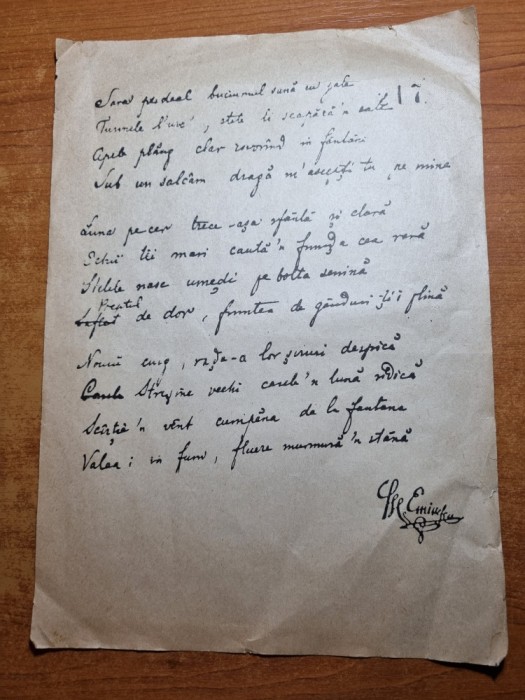 Sara pe deal buciumul sună cu jale
Turmele l'urc', stele le scapără'n cale
Apele plâng clar isvorînd în fântâni
Sub un salcâm dragă m'aștepți tu pe mine
Luna pe cer trece-așa sfântă și clară
Ochii tei mari caută'n frunḑa cea rară
Stelele nasc umeḑi pe bolta senină
Pieptul
de dor, fruntea de gânduri ți-i plină
Nourii curg, raḑe-a lor șiruri despică
Streșine vechi casele'n lună ridică
Scîrție'n vînt cumpăna de la fântâna
Valea-i în fum, fluere murmură'n stână
M Eminescu